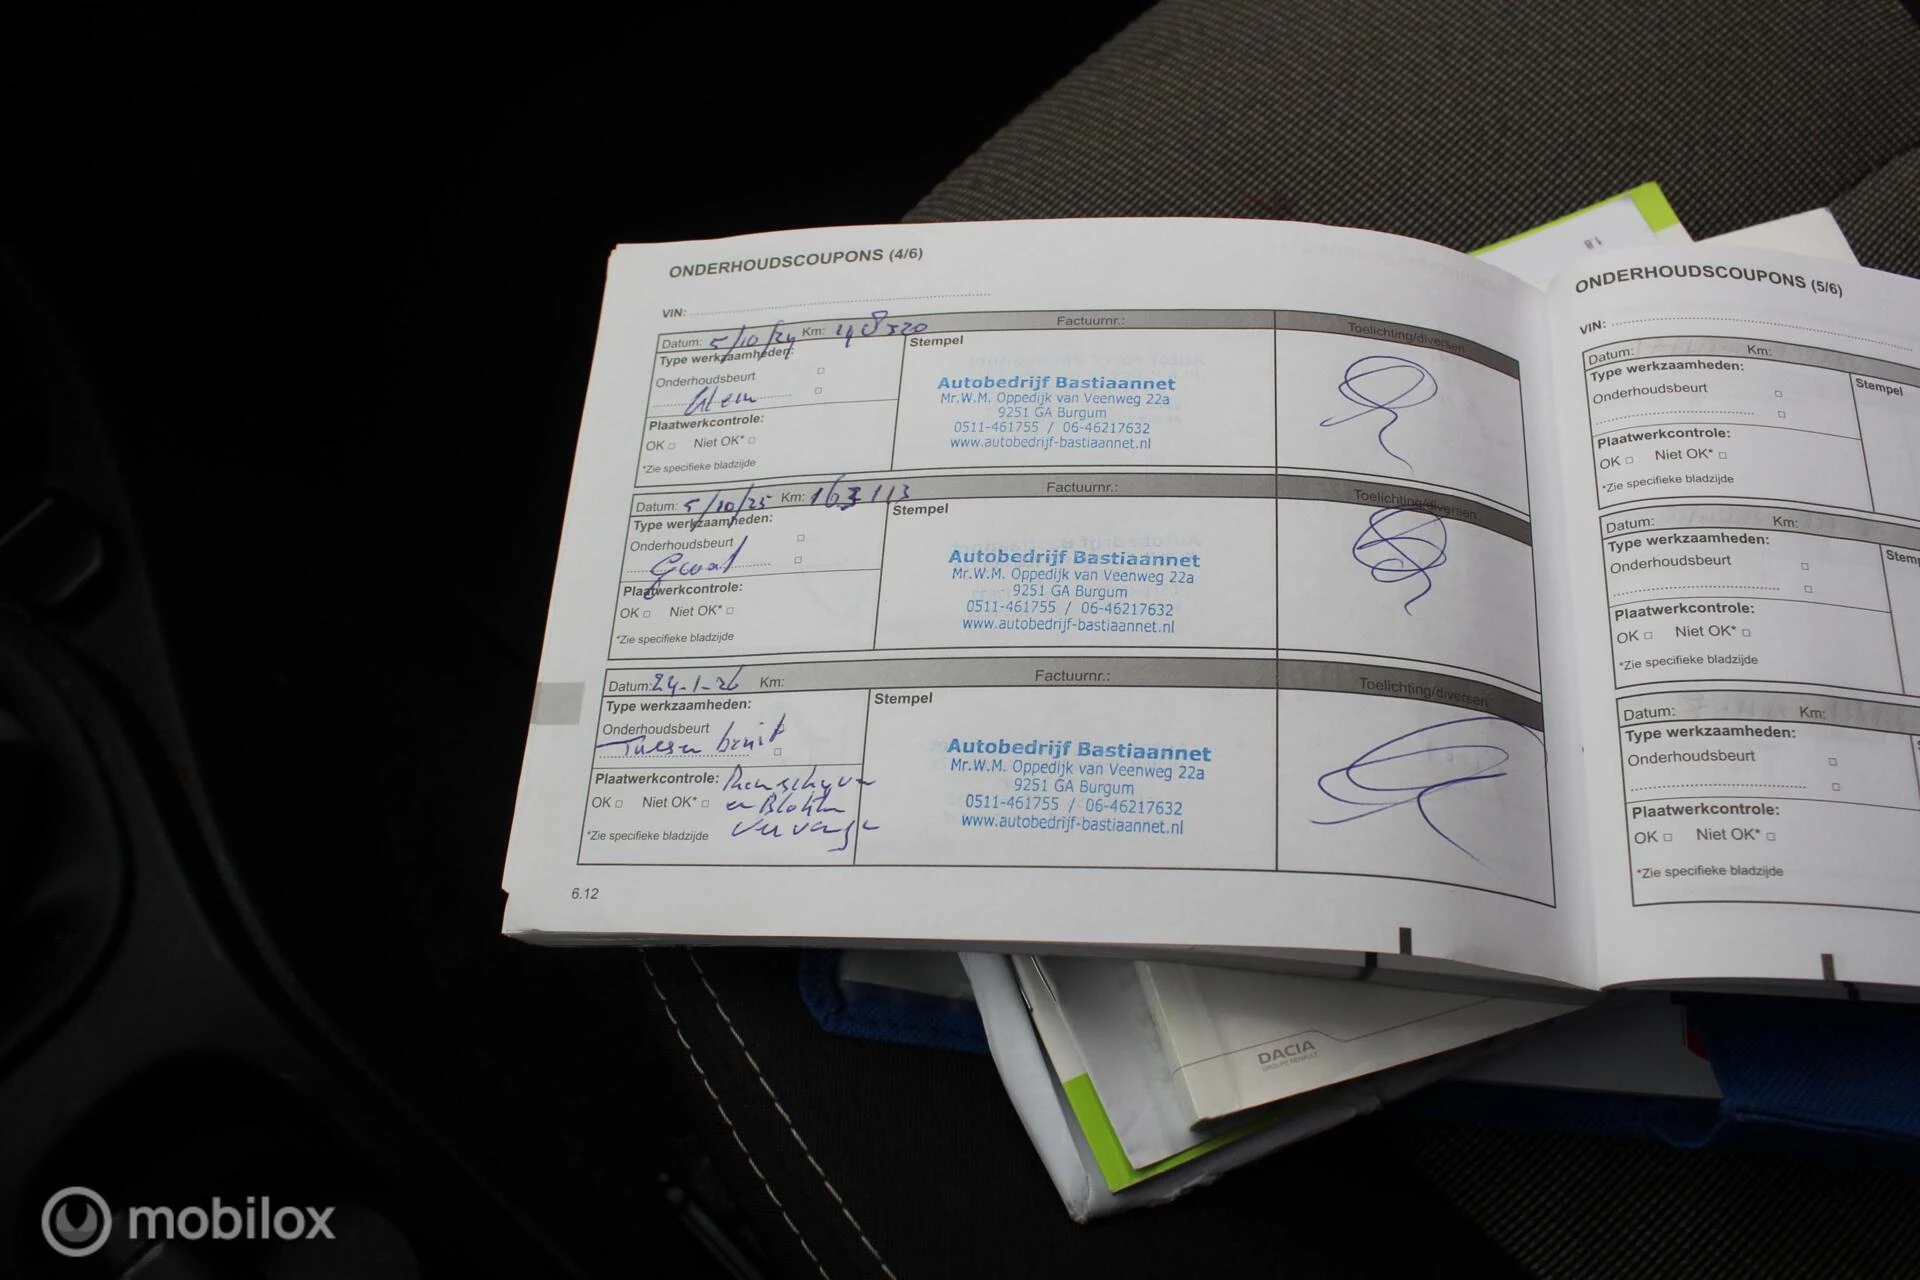 ONDERHOUDSCOUPONS (4/6)
VIN:
Datum: 5/10/24 Km: 148320 Factuurnr.: Toelichting/diversen
Type werkzaamheden: Stempel
Onderhoudsbeurt
Klein
Plaatwerkcontrole:
OK Niet OK*
*Zie specifieke bladzijde
Autobedrijf Bastiaannet
Mr.W.M. Oppedijk van Veenweg 22a
9251 GA Burgum
0511-461755 / 06-46217632
www.autobedrijf-bastiaannet.nl
Datum: 5/10/25 Km: 163113 Factuurnr.: Toelichting/diversen
Type werkzaamheden: Stempel
Onderhoudsbeurt
Groot
Plaatwerkcontrole:
OK Niet OK*
*Zie specifieke bladzijde
Autobedrijf Bastiaannet
Mr.W.M. Oppedijk van Veenweg 22a
9251 GA Burgum
0511-461755 / 06-46217632
www.autobedrijf-bastiaannet.nl
Datum: 24-1-26 Km: Factuurnr.: Toelichting/diversen
Type werkzaamheden: Stempel
Onderhoudsbeurt
Tussen
Plaatwerkcontrole: Remschyven
OK Niet OK* en Blokken
*Zie specifieke bladzijde vervangen
Autobedrijf Bastiaannet
Mr.W.M. Oppedijk van Veenweg 22a
9251 GA Burgum
0511-461755 / 06-46217632
www.autobedrijf-bastiaannet.nl
6.12
ONDERHOUDSCOUPONS (5/6)
VIN:
Datum: Km:
Type werkzaamheden: Stempel
Onderhoudsbeurt
Plaatwerkcontrole:
OK Niet OK*
*Zie specifieke bladzijde
Datum: Km:
Type werkzaamheden: Stemp
Onderhoudsbeurt
Plaatwerkcontrole:
OK Niet OK*
*Zie specifieke bladzijde
Datum: Km:
Type werkzaamheden:
Onderhoudsbeurt
Plaatwerkcontrole:
OK Niet OK*
*Zie specifieke bladzijde
DACIA
GROUPE RENAULT
mobilox